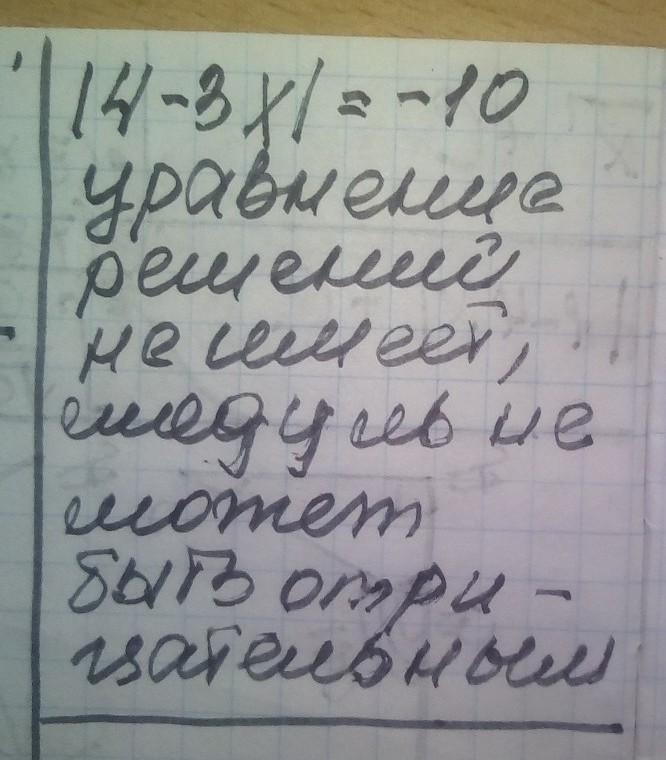 |4-3x|=-10
уравнение
решений
не имеет,
модуль не
может
быть отри-
цательным